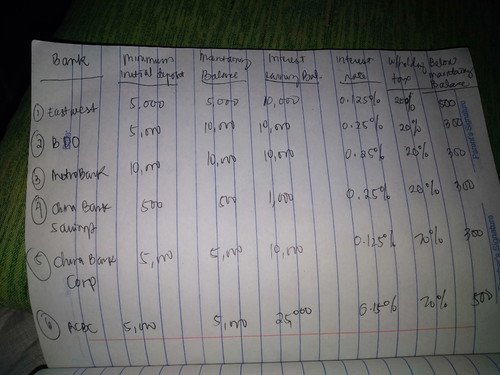 Bank Minimum Initial Deposit Maintaining Balance Interest earning Bal. Interest Rate w/holding tax Below maintaining Balance
① Eastwest 5,000 5,000 10,000 0.125% 20% 500
② BDO 5,000 10,000 10,000 0.25% 20% 300
③ MetroBank 10,000 10,000 10,000 0.25% 20% 300
④ China Bank Savings 500 500 1,000 0.25% 20% 300
⑤ China Bank Corp 5,000 5,000 10,000 0.125% 20% 300
⑥ 5,000 5,000 25,000 0.15% 20% 500